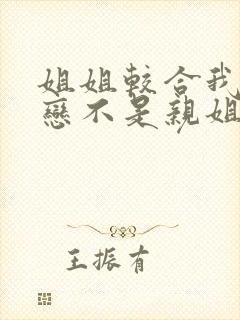 姐姐較合我
戀不是親姐
王振有